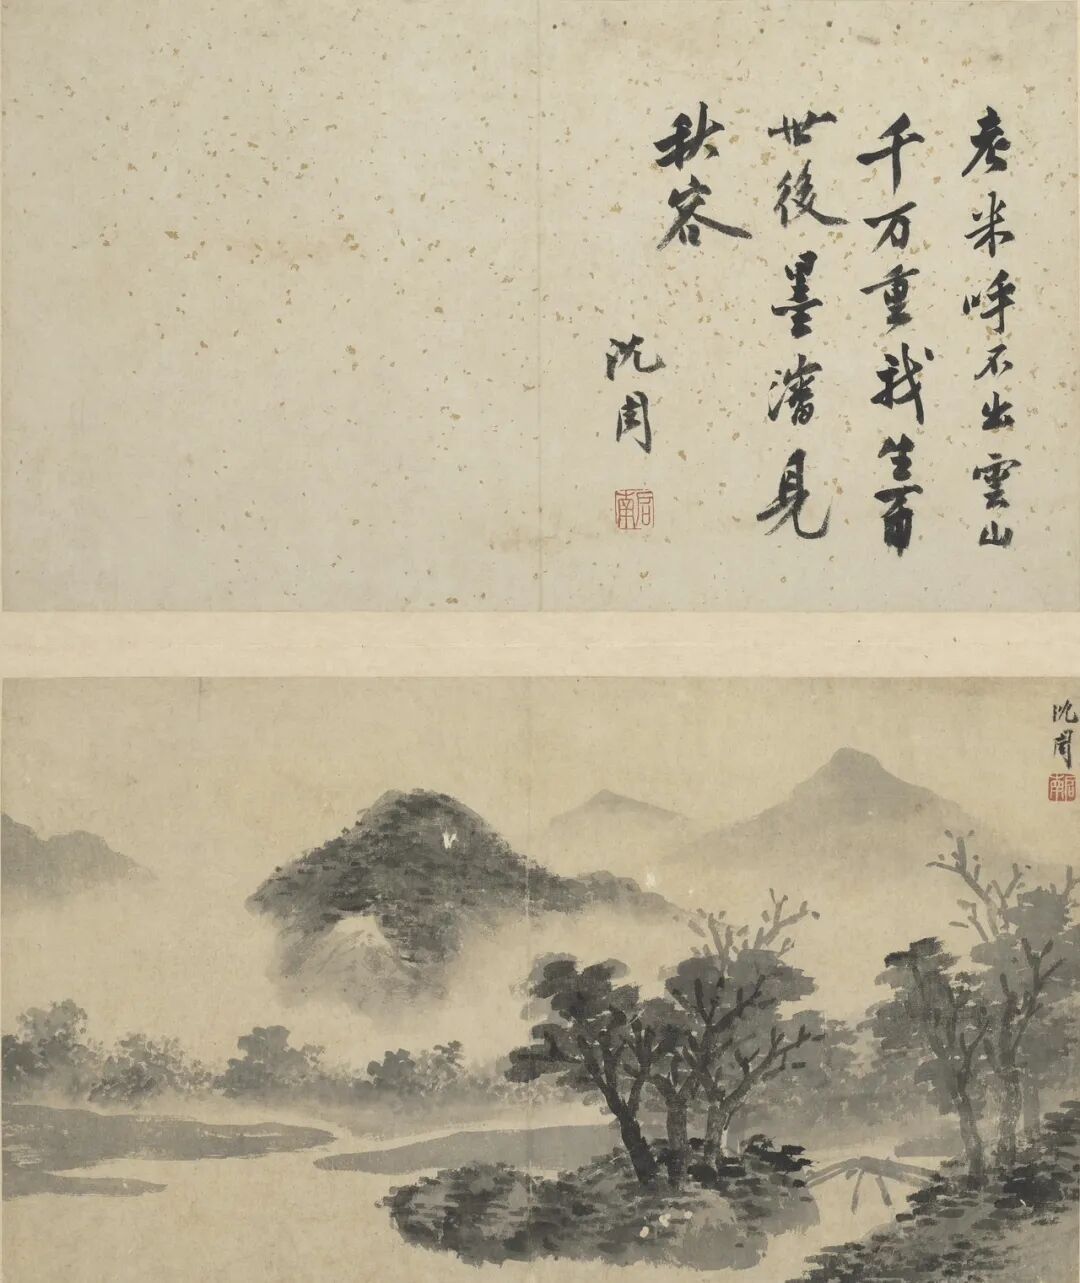 老米呼不出雲山
千万重我生百
世後墨瀋見
秋容
沈周
啓南
沈周
啓南